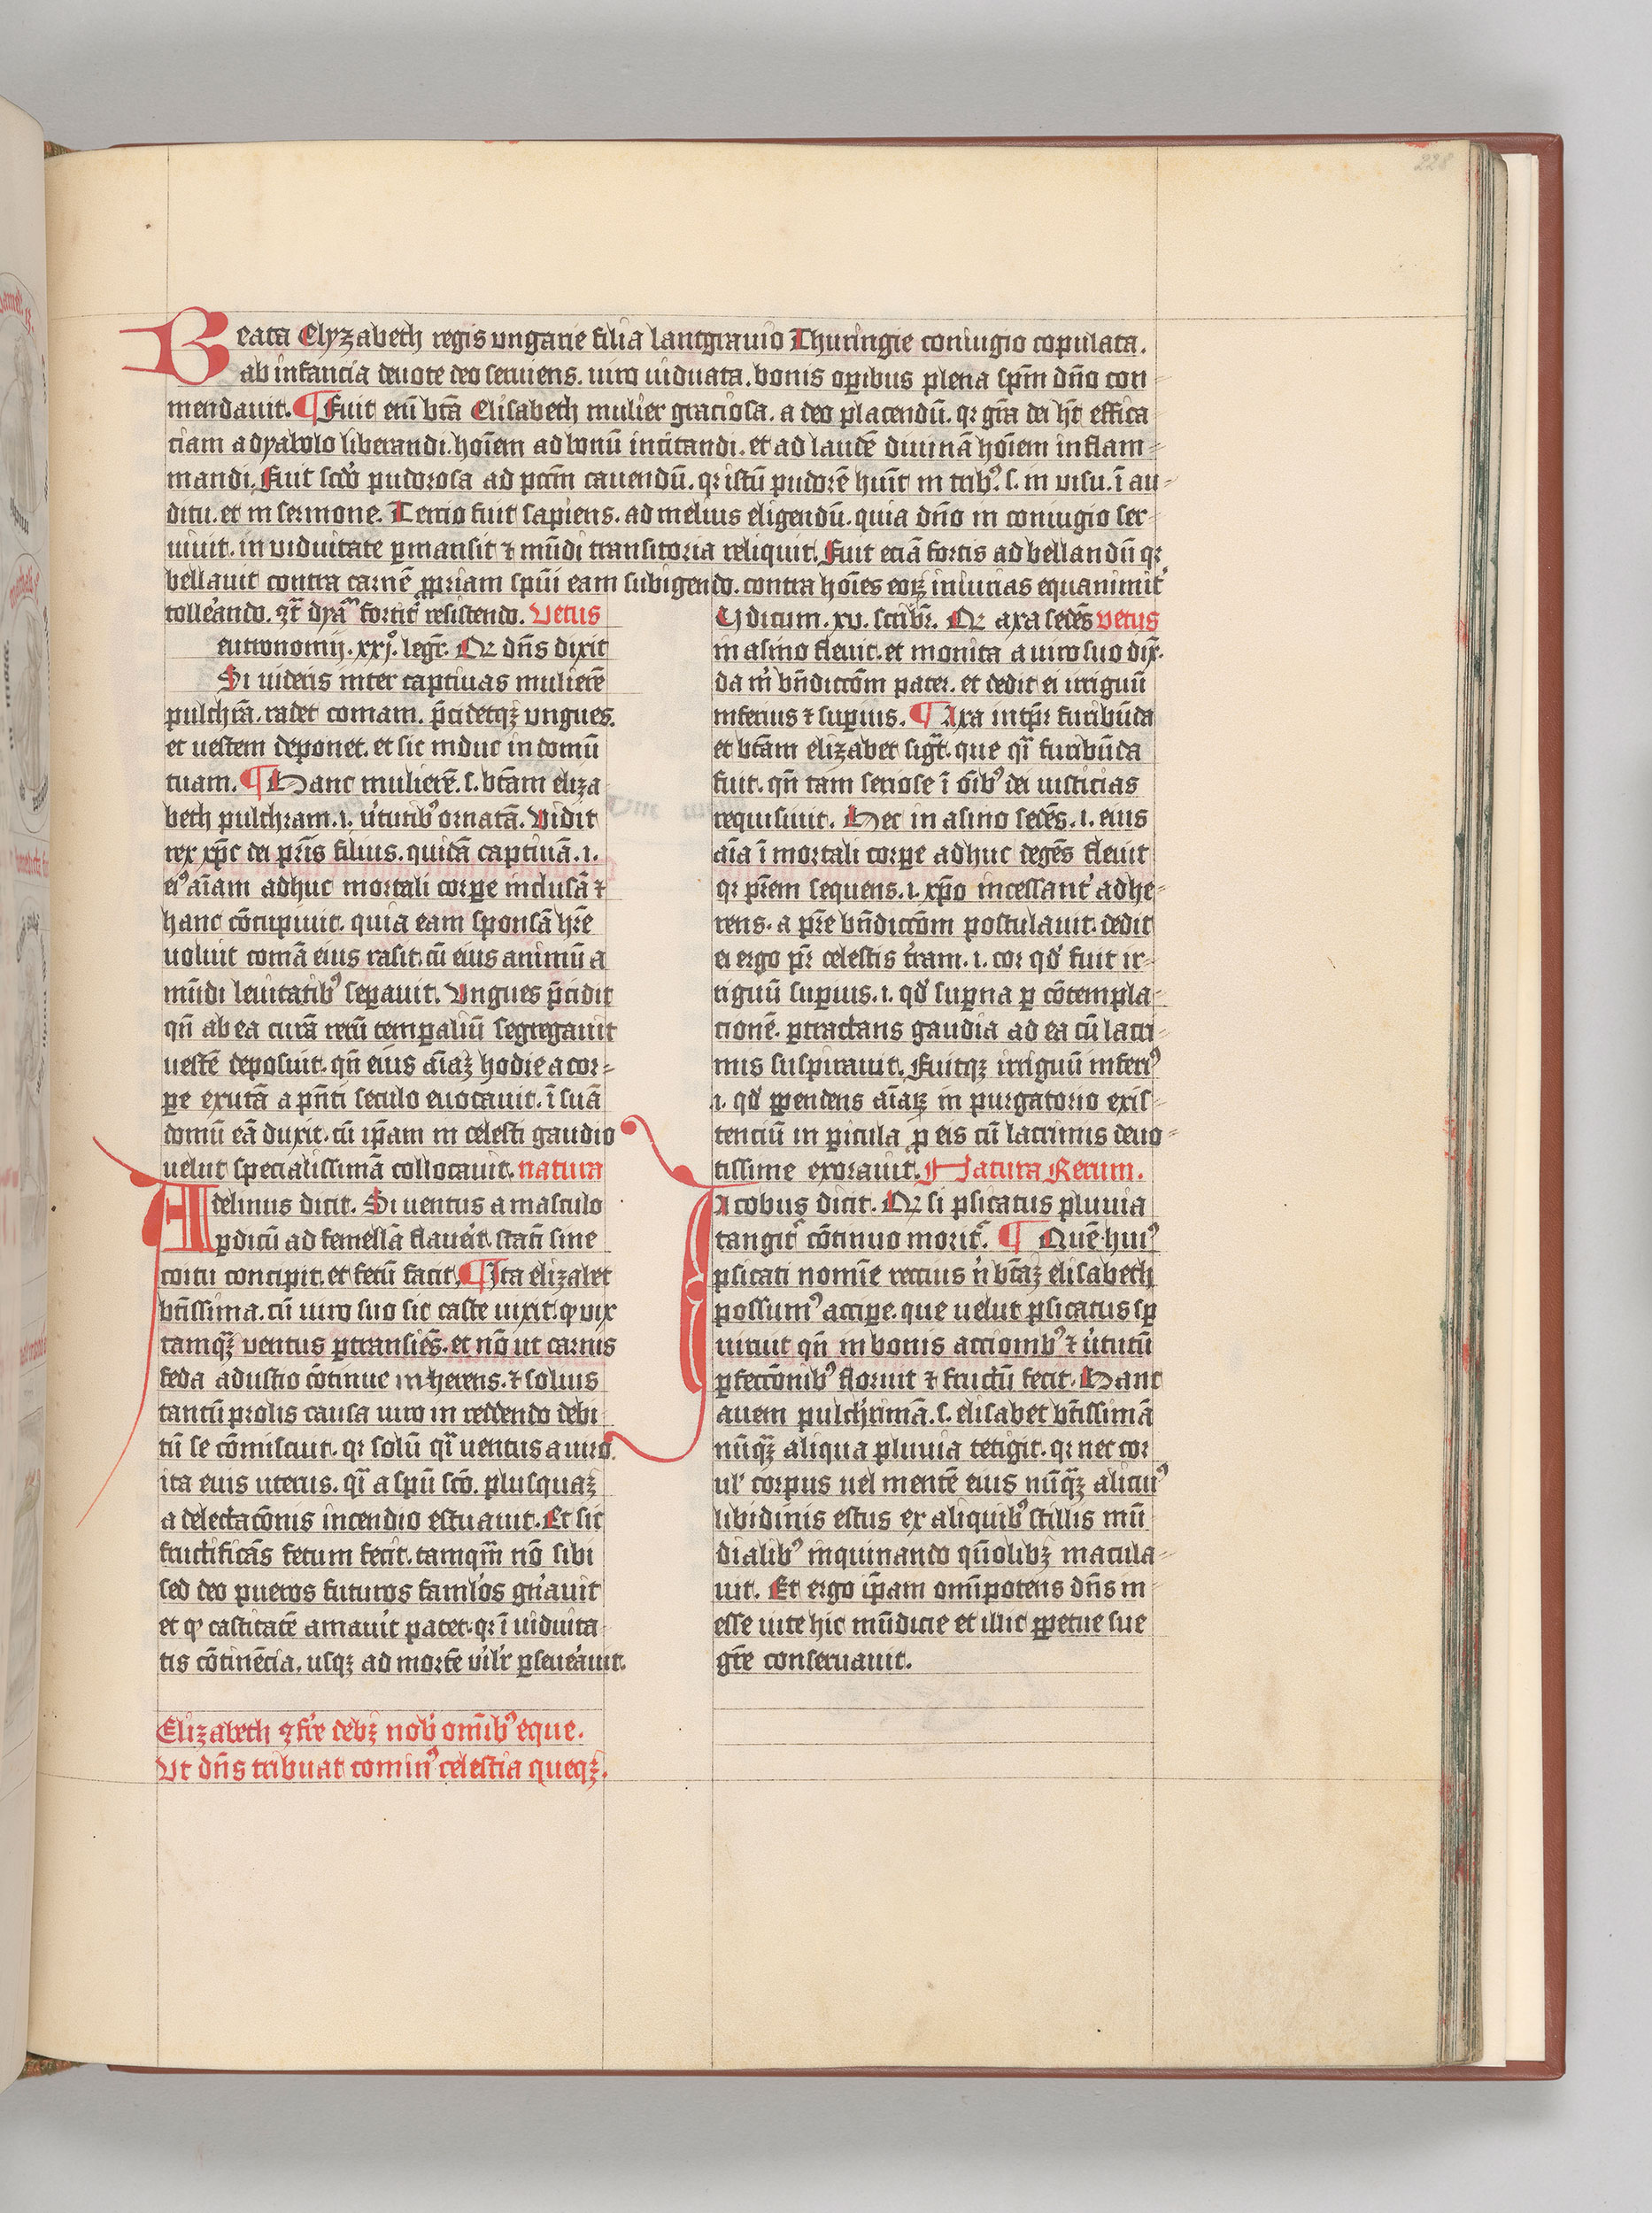 228
Beata Elyzabeth regis ungarie filia lantgrauio Thuringie coniugio copulata.
ab infancia deuote deo seruiens. uiro uiduata. bonis opibus plena spm dño con
mendauit. ¶ Fuit eni bta Elisabeth mulier graciosa. a deo placendū. qr gra dei ht effica
ciam a dyabolo liberandi. hoiem ad bonū incitandi. et ad laudē diuinā hoiem inflam
mandi. Fuit scdo pudorosa ad pccm cauendū. qr istū pudorē huit in tribꝰ. s. in uisu. ī au
ditu. et in sermone. Tercio fuit sapiens. ad melius eligendū. quia dño in coniugio ser
uiuit. in uiduitate pmansit ⁊ mūdi transitoria reliquit. Fuit eciā fortis ad bellandū qr
bellauit contra carnē ppriam spui eam subigendo. contra hoies eoꝝ iniurias equanimit
tolleando. ꝯt dya fortit resistendo. Vetus
eutronomij. xxj. legr. Qz dñs dixit
Si uideris inter captiuas mulierē
pulchrā. radet comam. pcidetqꝫ ungues.
et uestem deponet. et sic induc in domū
tuam. ¶ Hanc mulierē. s. btam eliza
beth pulchram. i. ututibꝰ ornatā. Vidit
rex xpc dei pris filius. quidā captiuā. i.
eiꝰ aiam adhuc mortali corpe inclusā ⁊
hanc cōcupiuit. quia eam sponsā hre
uoluit comā eius rasit. cū eius animū a
mūdi leuitatibꝰ sepauit. Ungues pcidit
qñ ab ea curā rerū tempaliū segregauit
uestē deposuit. qñ eius aiaꝫ hodie a cor
pe exutā a pñti seculo euocauit. ī suā
domū eā duxit. cū ipam in celesti gaudio
uelut specialissimā collocauit. natura
Adelinus dicit. Si uentus a masculo
pdicū ad femellā flauerit stati sine
coitu concipit. et fetū facit. ¶ Ita elizabet
btissima. cū uiro suo sic caste uixit. qꝫ uix
tamqꝫ uentus ptransiēs. et nō ut carnis
feda adustio cōtinue inherens. ⁊ solius
tantū prolis causa uiro in reddendo debi
tū se cōmiscuit. qr solū qi uentus a uiro
ita euis uterus. qi a spū sco. plusquaꝫ
a delectacōnis incendio estuauit. Et sic
fructificās fetum fecit. tamqm nō sibi
sed deo pueros futuros famlos gnauit
et qꝫ castitatē amauit patet. qr ī uiduita
tis cōtinēcia. usqꝫ ad mortē uilr pseueauit.
Elizabeth ꝯfre debꝫ nob omibꝰ eque.
Vt dñs tribuat cominꝰ celestia queqꝫ.
Yditum. xv. scribr. Qz axa sedēs vetus
in asino fleuit. et monita a uiro suo dix.
da m bñdiccōm pater. et dedit ei irriguū
inferius ⁊ supius. ¶ Axa intpr furibūda
et btam elizabet sigt. que qi furibūda
fuit. qñ tam seriose ī oibꝰ dei iusticias
requisiuit. Hec in asino sedēs. i. eius
aia ī mortali corpe adhuc degēs fleuit
qr prem sequens. i. xpo incessant adhe
rens. a pre bñdiccōm postulauit. dedit
ei ergo pr celestis tram. i. cor qd fuit ir
riguū supius. i. qd supna p cōtempla
cionē. ptractans gaudia ad ea cū lacri
mis suspirauit. Fuitqꝫ irriguū inferiꝰ
i. qd ppendens aiaꝝ in purgatorio exis
tenciū in picula p eis cū lacrimis deuo
tissime exorauit. Natura Rerum.
Iacobus dicit. Qz si psicatus pluuia
tangit cōtinuo morit. ¶ Quē huiꝰ
psicati nomie rectius n btaꝫ elisabeth
possumꝰ accipe. que uelut psicatus sp
uiruit qñ in bonis accionibꝰ ⁊ ututū
pfeccōnibꝰ floruit ⁊ fructū fecit. Hanc
auem pulchrimā. s. elisabet btissimā
nūqꝫ aliqua pluuia tetigit. qr nec cor
ul corpus uel mentē eius nūqꝫ alicuiꝰ
libidinis estus ex aliquibꝰ stillis mū
dialibꝰ inquinando qūolibꝫ macula
uit. Et ergo ipam omipotens dñs in
esse uite hic mūdicie et illic ppetue sue
gre conseruauit.